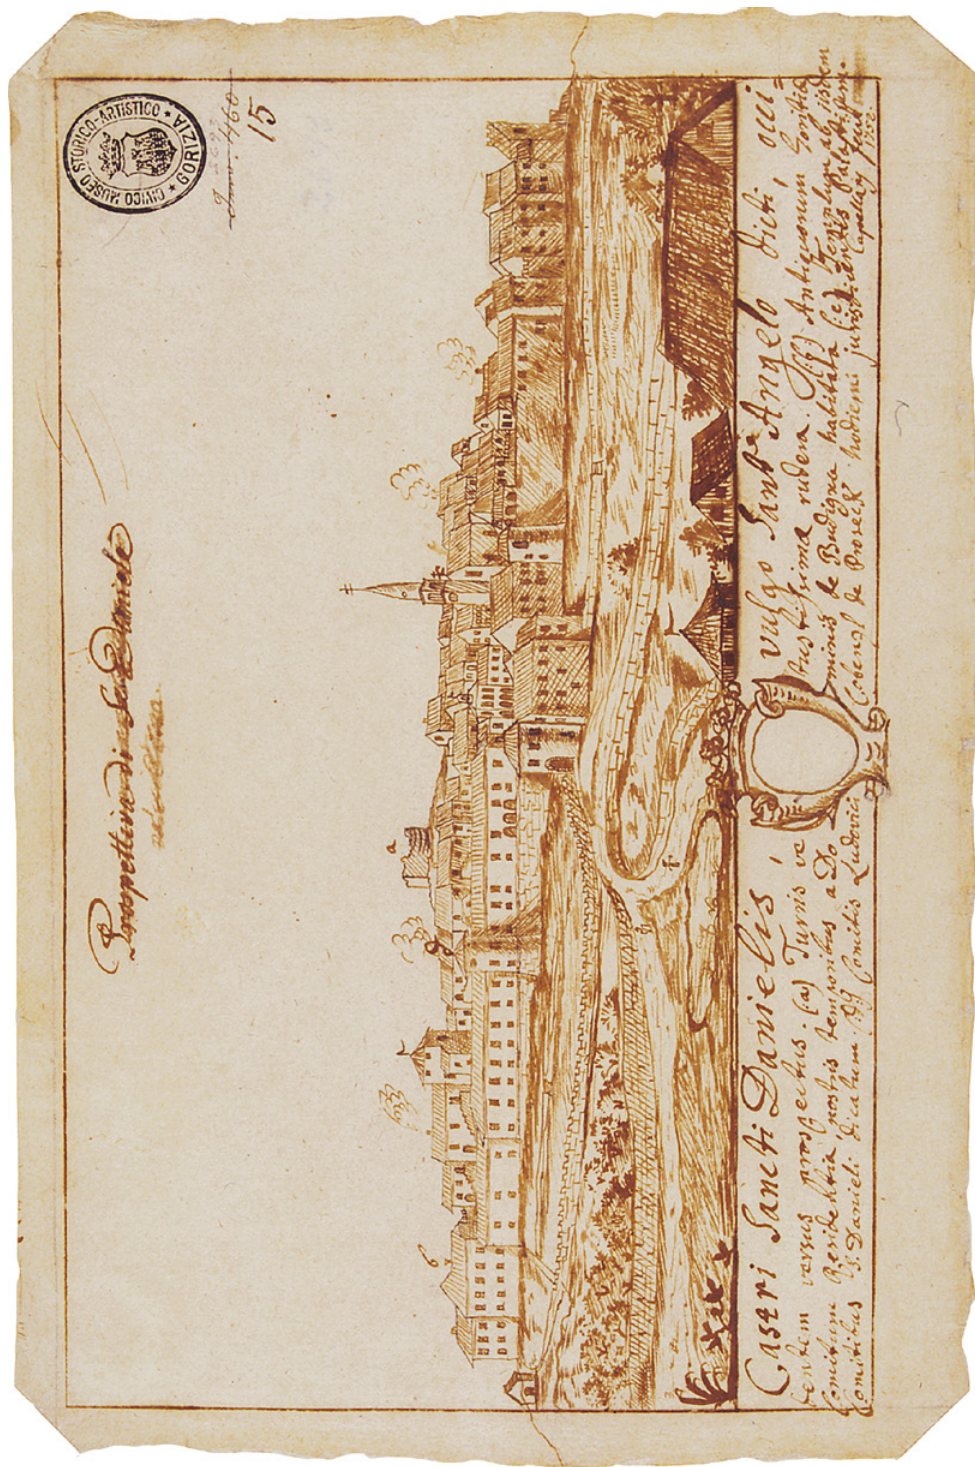 CIVICO MUSEO STORICO-ARTISTICO * GORIZIA *
15
Prospettiva di S. Daniele
a
b
c
Castri Sancti Danielis, vulgo Sant Angelo dicti, qui
dentem versus prospectus. (a) Turris vetustissima rudera. (b) Antiquorum Goritiæ
Comitum Residentia, nostris temporibus a Dominis de Budigna habitata (c) Templum ab iisdem
Comitibus S. Danieli dicatum Comitis Ludovici Cobenzl de Proseck hodierni jurisdicentis Palatii
1752.